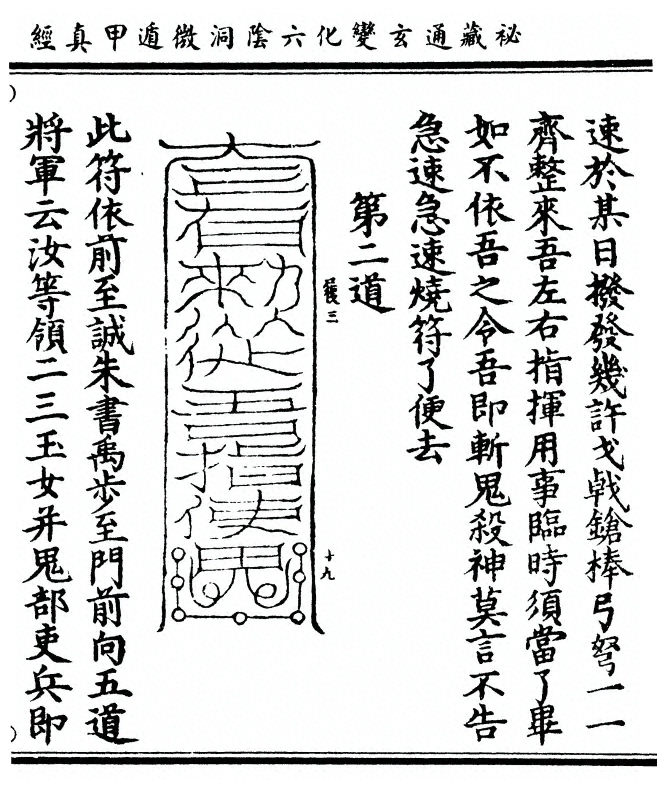 祕藏通玄變化六陰洞微遁甲真經
速於某日撥發幾許戈戟鎗棒弓弩一一
齊整來吾左右指揮用事臨時須當了畢
如不依吾之令吾即斬鬼殺神莫言不告
急速急速燒符了便去
第二道
三
十九
此符依前至誠朱書禹步至門前向五道
將軍云汝等領二三玉女并鬼部吏兵即